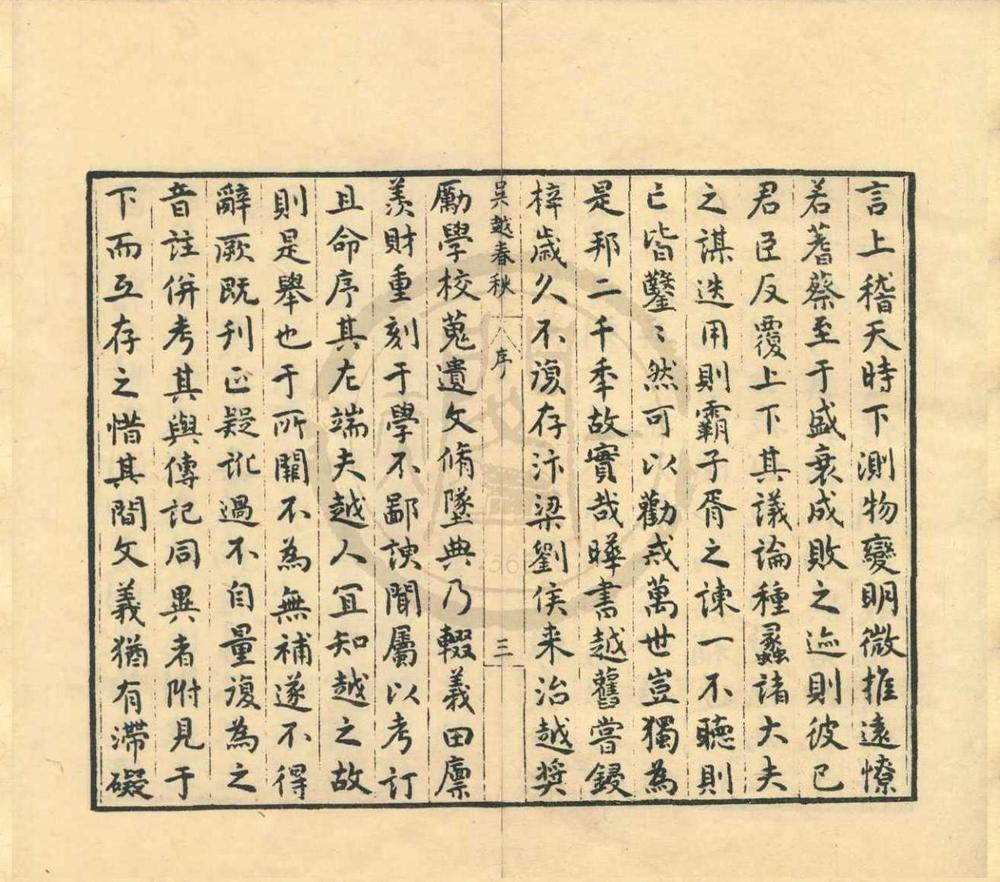 言上稽天時下測物變明微推遠憭
若蓍蔡至于盛衰成敗之迹則彼已
君臣反覆上下其議論種蠡諸大夫
之謀迭用則霸子胥之諫一不聽則
亡皆鑿〻然可以勸戒萬世豈獨為
是邦二千季故實哉曄書越舊嘗鋟
梓歲久不復存汴梁劉侯来治越奬
吳越春秋 序 三
勵學校蒐遺文脩墜典乃輟義田廪
羨財重刻于學不鄙謏聞屬以考訂
且命序其左端夫越人宜知越之故
則是舉也于所關不為無補遂不得
辭厥既刊正疑訛過不自量復為之
音註併考其與傳記同異者附見于
下而互存之惜其間文義猶有滯礙